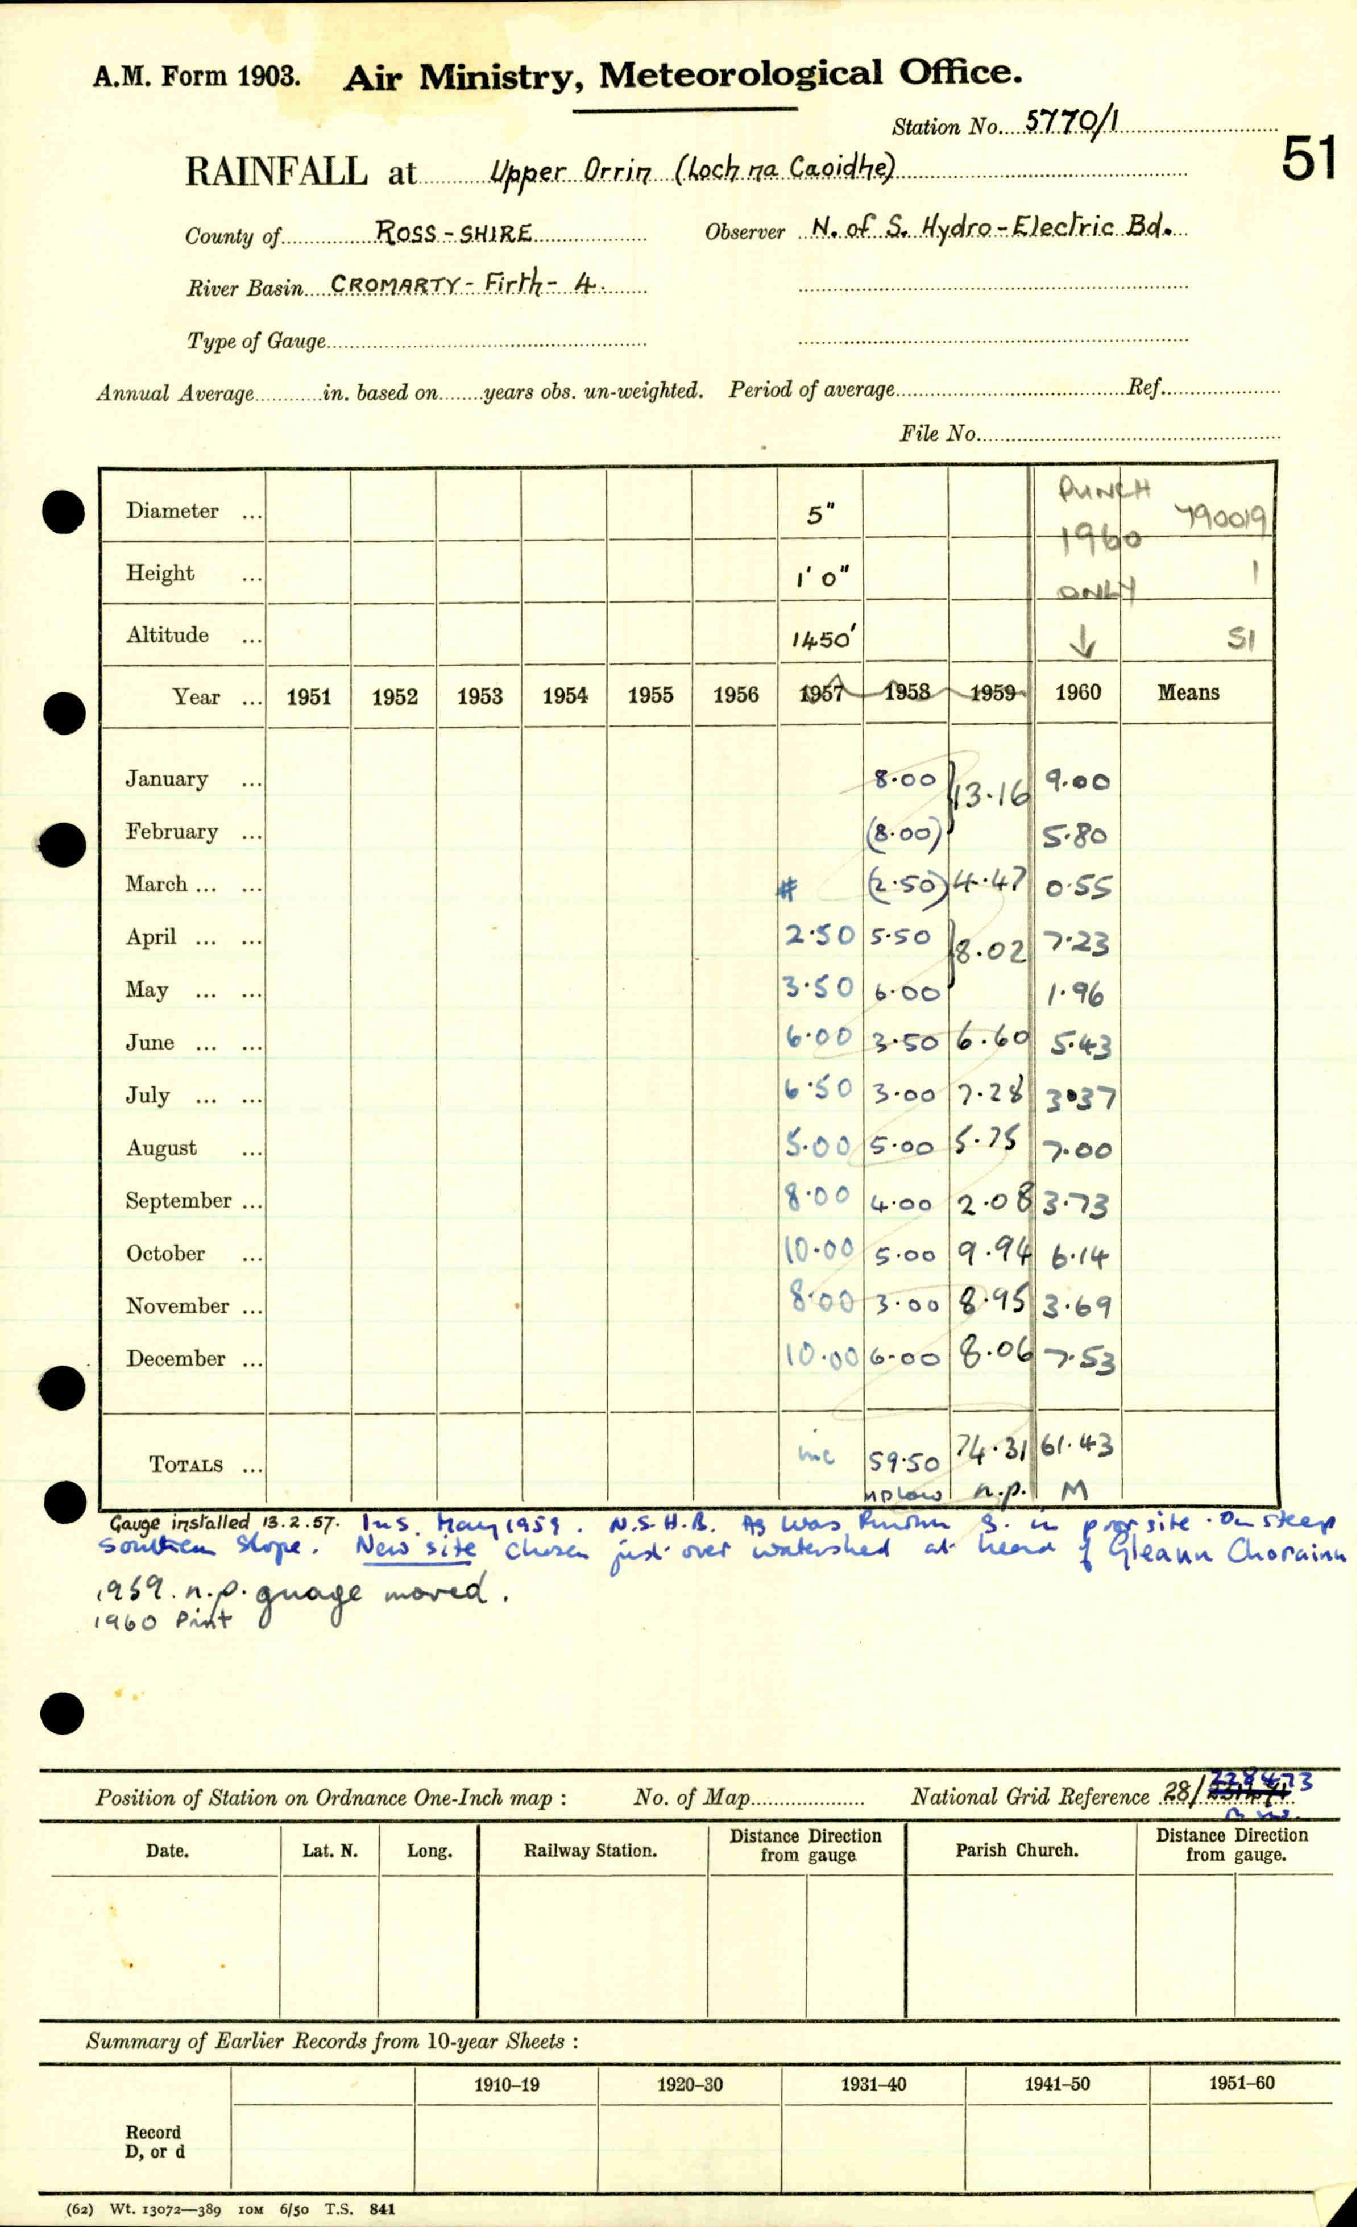 A.M. Form 1903. Air Ministry, Meteorological Office.
Station No. 5770/1
51
RAINFALL at Upper Orrin (Loch na Caoidhe)
County of ROSS-SHIRE Observer N. of S. Hydro-Electric Bd.
River Basin CROMARTY-Firth-4.
Type of Gauge
Annual Average in. based on years obs. un-weighted. Period of average Ref.
File No.
Diameter ... 5" PUNCH 790019
Height ... 1' 0" 1960 ONLY 1
Altitude ... 1450' ↓ 51
Year ... 1951 1952 1953 1954 1955 1956 1957 1958 1959 1960 Means
January ... 8.00 } 13.16 9.00
February ... (8.00) 5.80
March ... ... # (2.50) 4.47 0.55
April ... ... 2.50 5.50 } 8.02 7.23
May ... ... 3.50 6.00 1.96
June ... ... 6.00 3.50 6.60 5.43
July ... ... 6.50 3.00 7.28 3.37
August ... 5.00 5.00 5.75 7.00
September ... 8.00 4.00 2.08 3.73
October ... 10.00 5.00 9.94 6.14
November ... 8.00 3.00 8.95 3.69
December ... 10.00 6.00 8.06 7.53
TOTALS ... inc 59.50 74.31 61.43
np low n.p. M
Gauge installed 13.2.57. Ins. May 1959. N.S.H.B. As was g. in poor site. On steep
Southern slope. New site chosen just over watershed at head of Gleann Chorainn
1959. n.p. guage moved.
1960 Print
Position of Station on Ordnance One-Inch map : No. of Map National Grid Reference 28/ 228473
Date. Lat. N. Long. Railway Station. Distance Direction from gauge Parish Church. Distance Direction from gauge.
Summary of Earlier Records from 10-year Sheets :
1910-19 1920-30 1931-40 1941-50 1951-60
Record
D, or d
(62) Wt. 13072—389 10M 6/50 T.S. 841